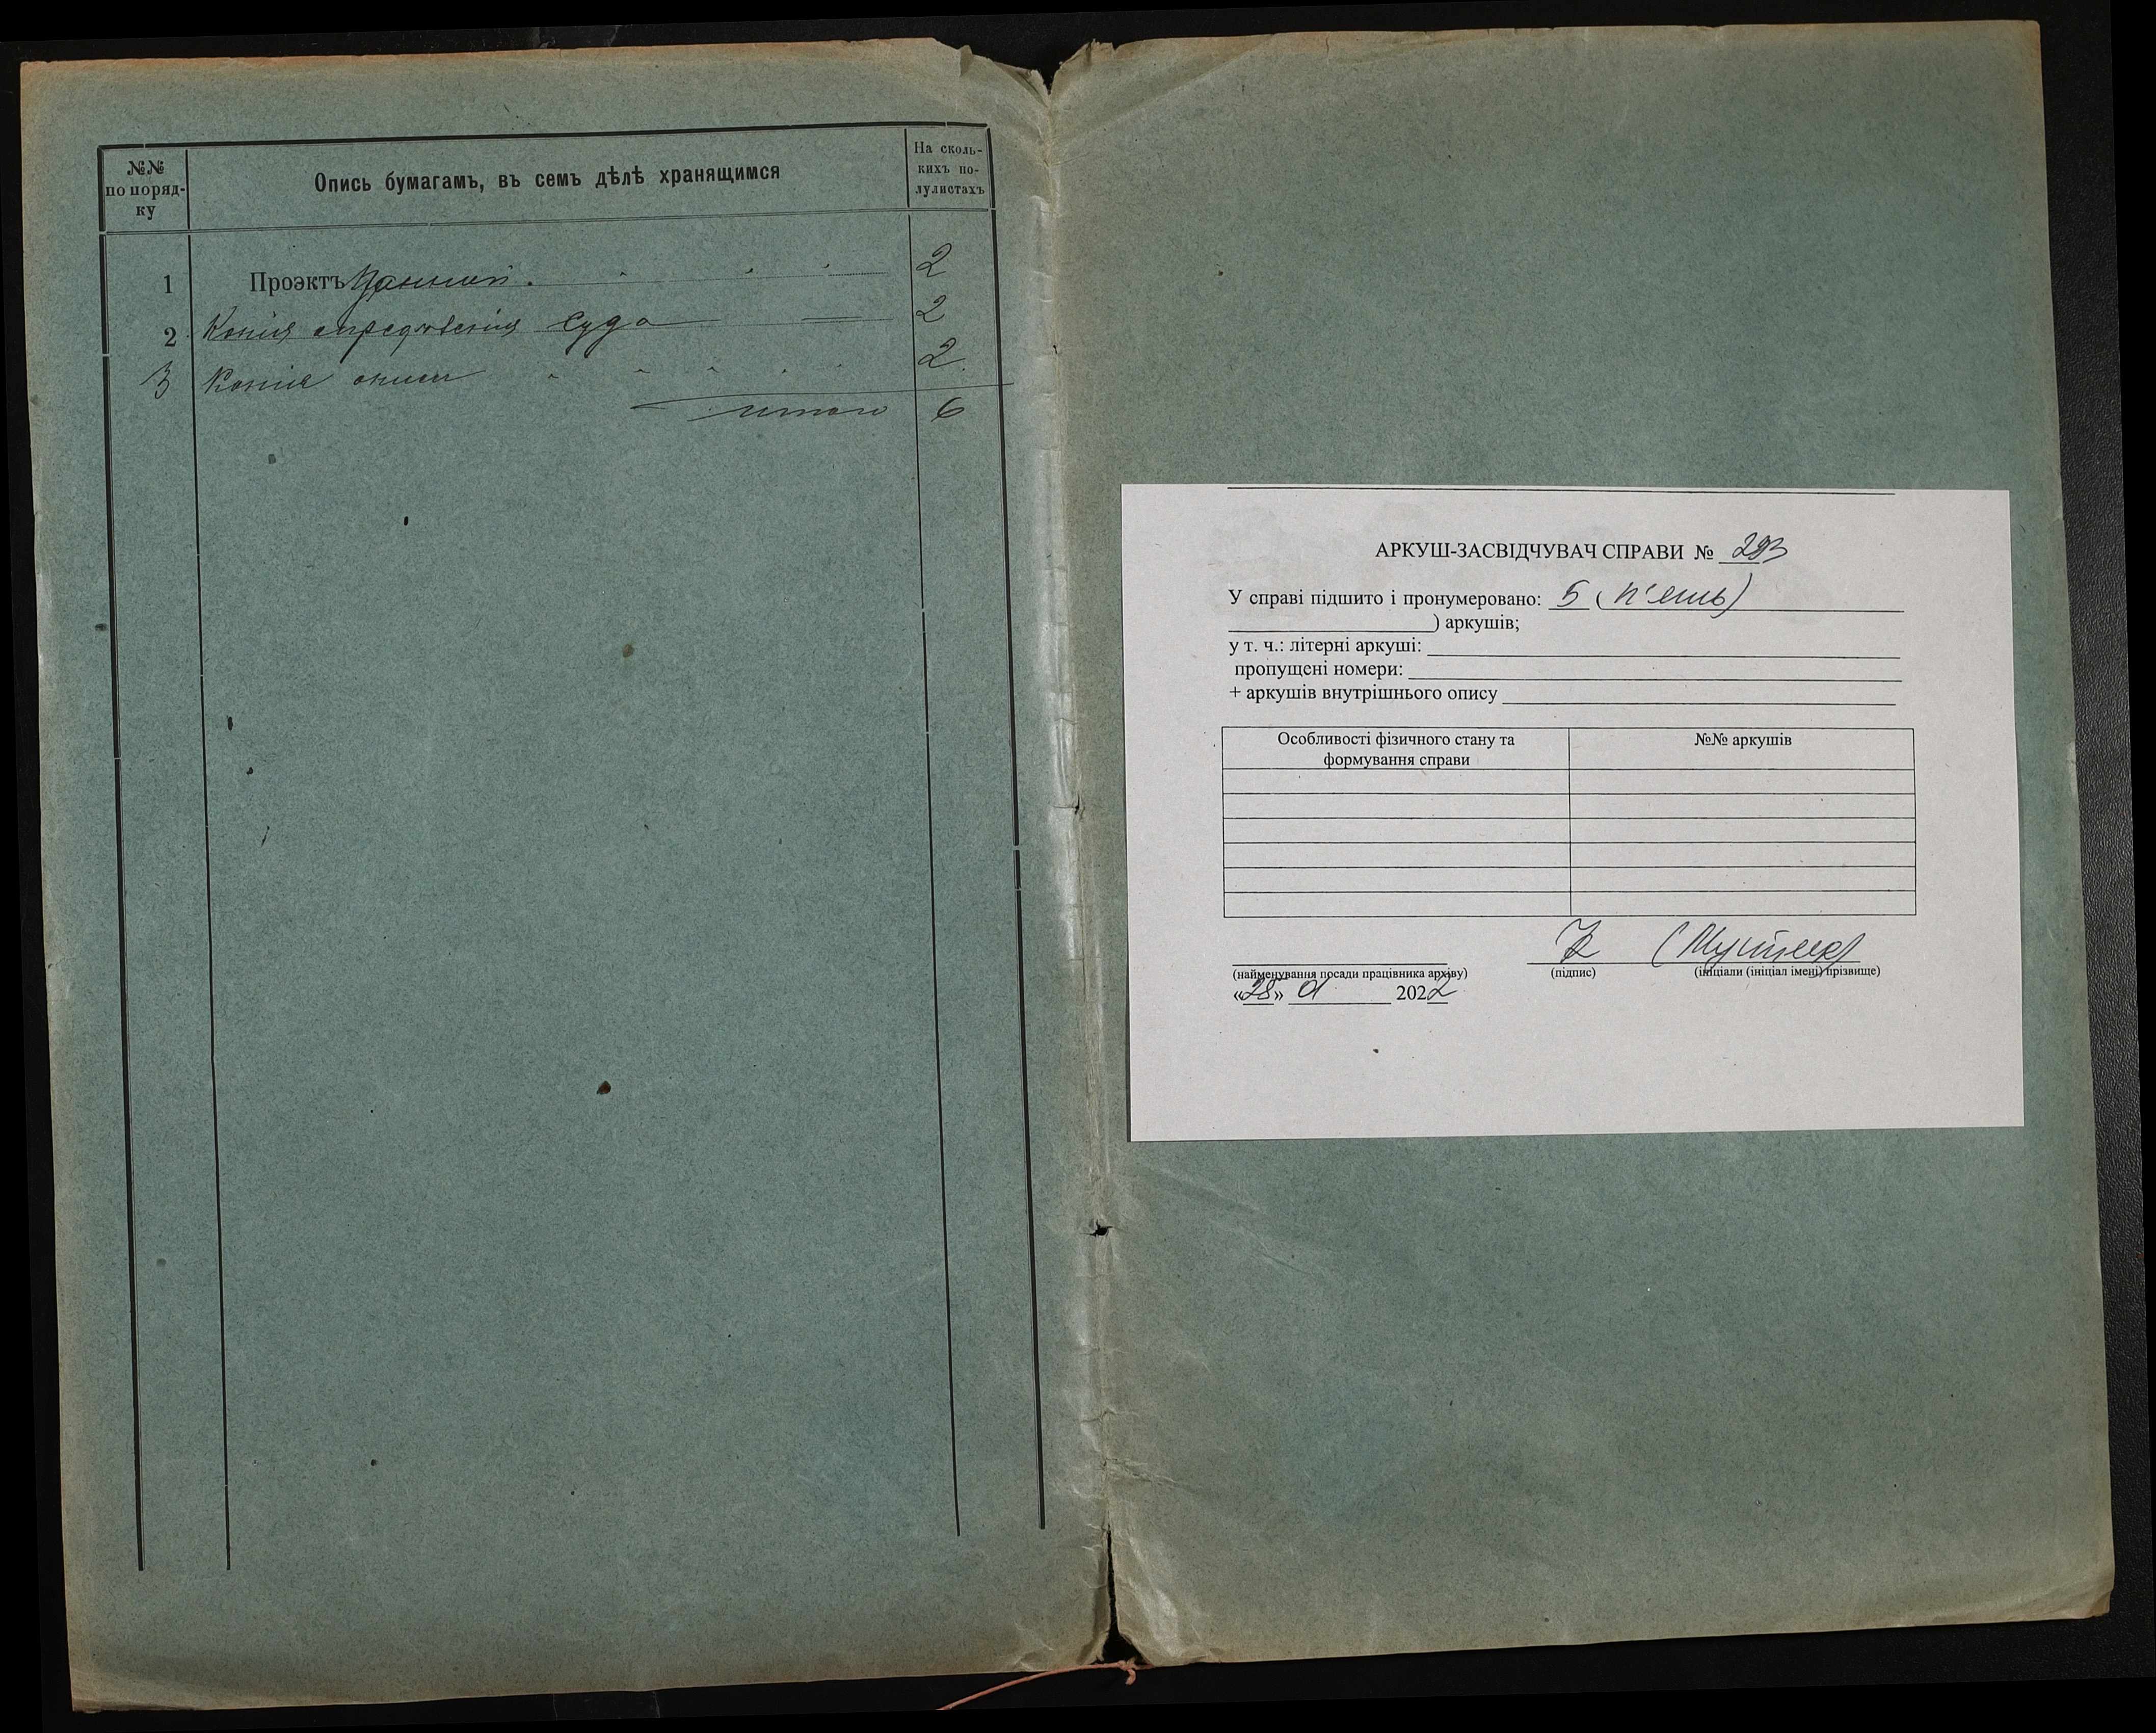 №№
по поряд-
ку
Опись бумагамъ, въ семъ дѣлѣ хранящимся
На сколь-
кихъ по-
лулистахъ
1 Проэктъ Данной. 2
2 Копія опредѣленія Суда 2
3 Копія описи 2.
итого 6
АРКУШ-ЗАСВІДЧУВАЧ СПРАВИ № 293
У справі підшито і пронумеровано: 5 (п'ять)
) аркушів;
у т. ч.: літерні аркуші:
пропущені номери:
+ аркушів внутрішнього опису
Особливості фізичного стану та
формування справи
№№ аркушів
(найменування посади працівника архіву) (підпис) (ініціали (ініціал імені) прізвище)
«28» 01 2022